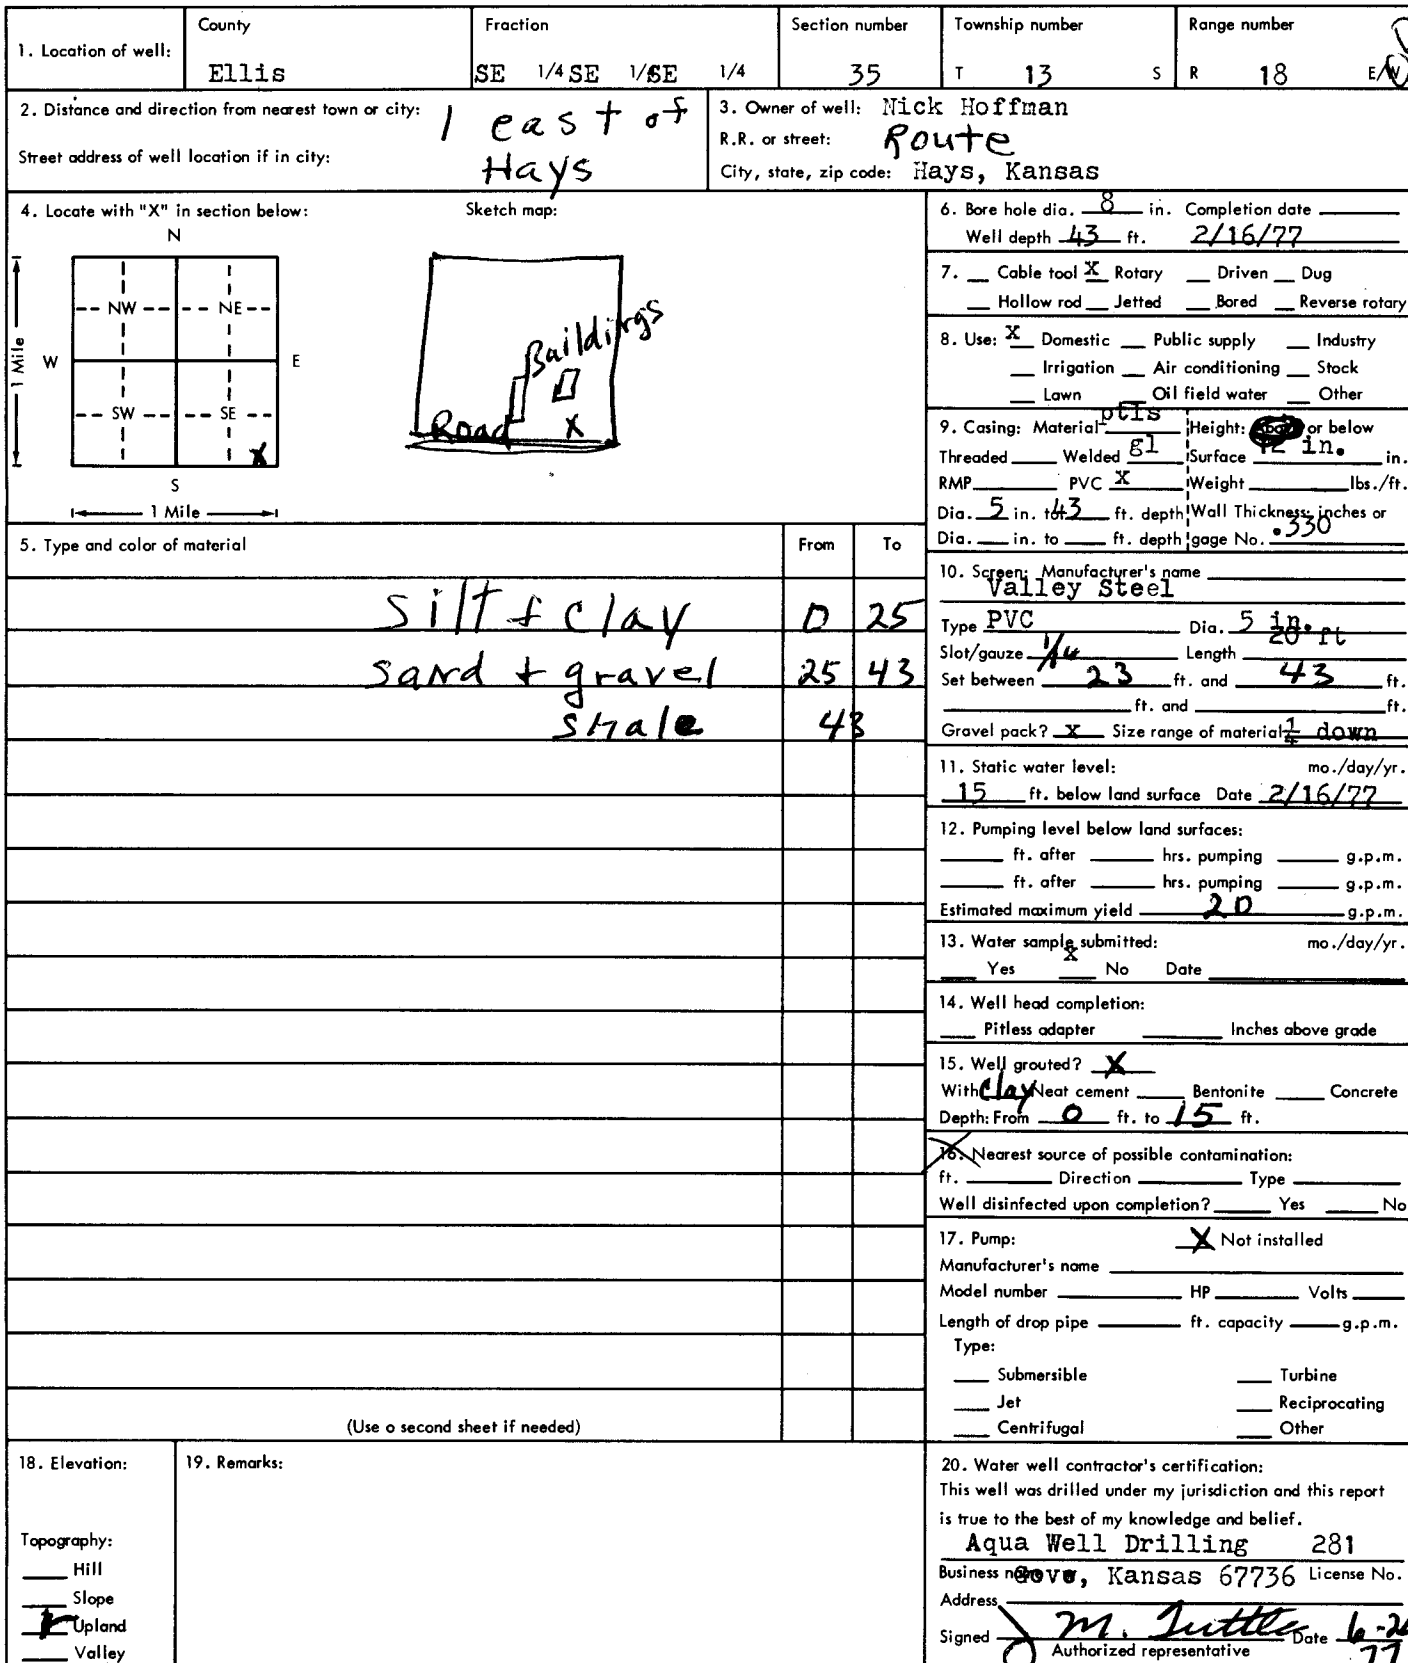 1. Location of well:
County
Ellis
Fraction
SE 1/4 SE 1/4 SE 1/4
Section number
35
Township number
T 13 S
Range number
R 18 E/W
2. Distance and direction from nearest town or city: 1 east of
Street address of well location if in city: Hays
3. Owner of well: Nick Hoffman
R.R. or street: Route
City, state, zip code: Hays, Kansas
4. Locate with "X" in section below:
N
NW NE
W E
SW SE
X
S
1 Mile
1 Mile
Sketch map:
Buildings
Road X
5. Type and color of material From To
silt + clay 0 25
sand + gravel 25 43
shale 43
(Use o second sheet if needed)
6. Bore hole dia. 8 in. Completion date
Well depth 43 ft. 2/16/77
7. Cable tool X Rotary Driven Dug
Hollow rod Jetted Bored Reverse rotary
8. Use: X Domestic Public supply Industry
Irrigation Air conditioning Stock
Lawn Oil field water Other
9. Casing: Material ptls Height: or below
Threaded Welded gl Surface 12 in. in.
RMP PVC X Weight lbs./ft.
Dia. 5 in. to 43 ft. depth Wall Thickness: inches or
Dia. in. to ft. depth gage No. .330
10. Screen: Manufacturer's name
Valley Steel
Type PVC Dia. 5 in.
Slot/gauze Length 20 ft
Set between 23 ft. and 43 ft.
ft. and ft.
Gravel pack? X Size range of material 1/4 down
11. Static water level: mo./day/yr.
15 ft. below land surface Date 2/16/77
12. Pumping level below land surfaces:
ft. after hrs. pumping g.p.m.
ft. after hrs. pumping g.p.m.
Estimated maximum yield 20 g.p.m.
13. Water sample submitted: mo./day/yr.
Yes X No Date
14. Well head completion:
Pitless adapter Inches above grade
15. Well grouted? X
With clay Neat cement Bentonite Concrete
Depth: From 0 ft. to 15 ft.
16. Nearest source of possible contamination:
ft. Direction Type
Well disinfected upon completion? Yes No
17. Pump: X Not installed
Manufacturer's name
Model number HP Volts
Length of drop pipe ft. capacity g.p.m.
Type:
Submersible Turbine
Jet Reciprocating
Centrifugal Other
18. Elevation:
Topography:
Hill
Slope
Upland
Valley
19. Remarks:
20. Water well contractor's certification:
This well was drilled under my jurisdiction and this report
is true to the best of my knowledge and belief.
Aqua Well Drilling 281
Business name Gove, Kansas 67736 License No.
Address
Signed M. Tuttle Date
Authorized representative 77